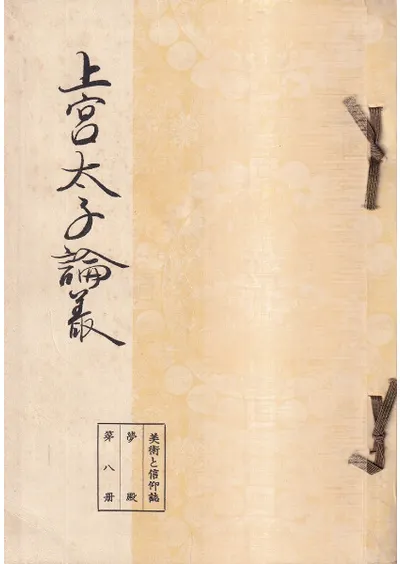 上宮太子論叢
美術と信仰誌
夢殿
第八册